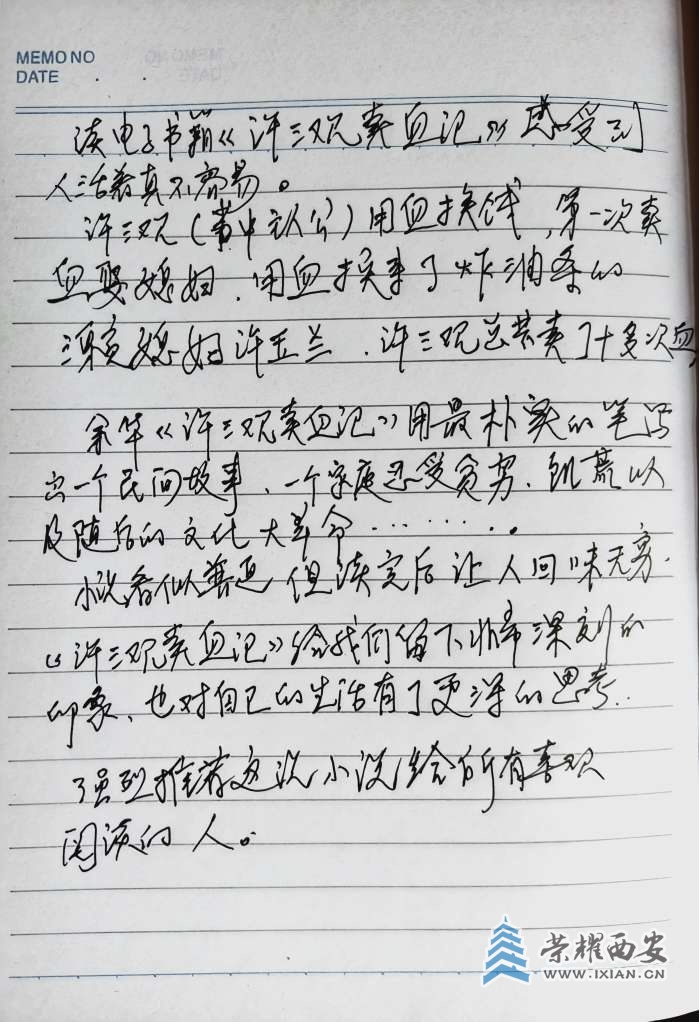 MEMO NO
DATE . .
读电子书籍《许三观卖血记》感受到
人活着真不容易。
许三观(书中主人公)用血换钱,第一次卖
血娶媳妇,用血换来了炸油条的
漂亮媳妇许玉兰,许三观总共卖了十多次血,
余华《许三观卖血记》用最朴实的笔写
出一个民间故事、一个家庭忍受贫穷、饥荒以
及随后的文化大革命………。
小说看似普通 但读完后让人回味无穷.
《许三观卖血记》给我们留下非常深刻的
印象、也对自己的生活有了更深的思考.
强烈推荐这 小说给所有喜欢
阅读的人。
荣耀西安
WWW.IXIAN.CN